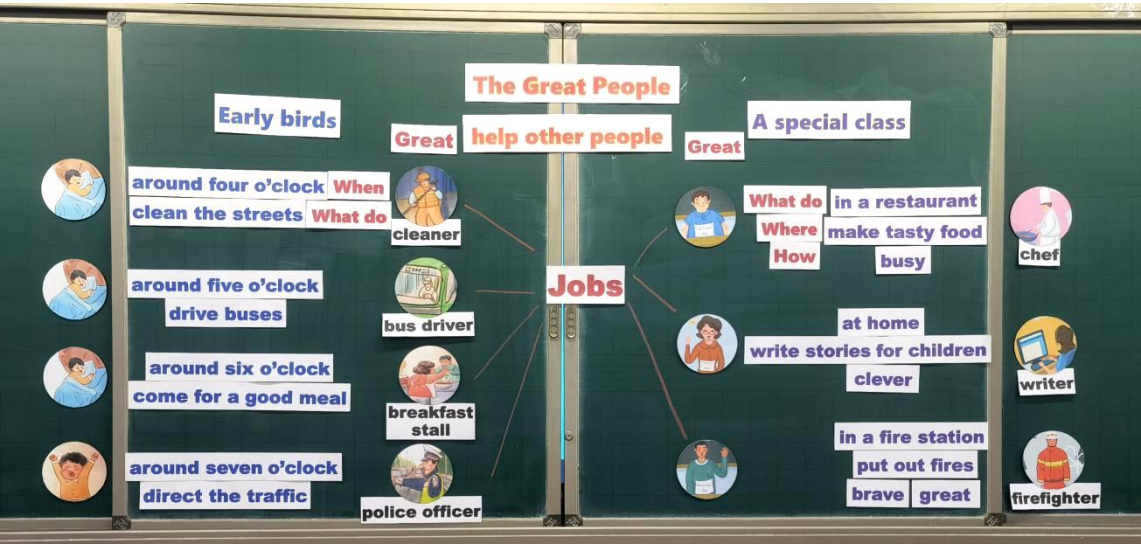 The Great People
help other people
Early birds
Great
around four o'clock When
clean the streets What do
cleaner
around five o'clock
drive buses
bus driver
around six o'clock
come for a good meal
breakfast
stall
around seven o'clock
direct the traffic
police officer
Jobs
Great
A special class
What do in a restaurant
Where make tasty food
How busy
chef
at home
write stories for children
clever
writer
in a fire station
put out fires
brave great
firefighter